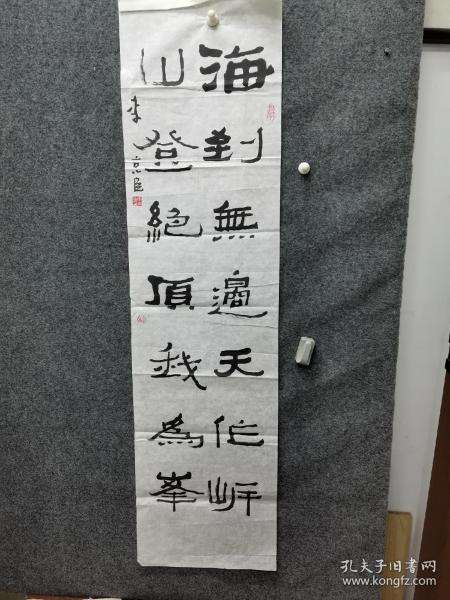 海到無邊天作岸
山登絕頂我為峯
李京臣
孔夫子旧书网
www.kongfz.com